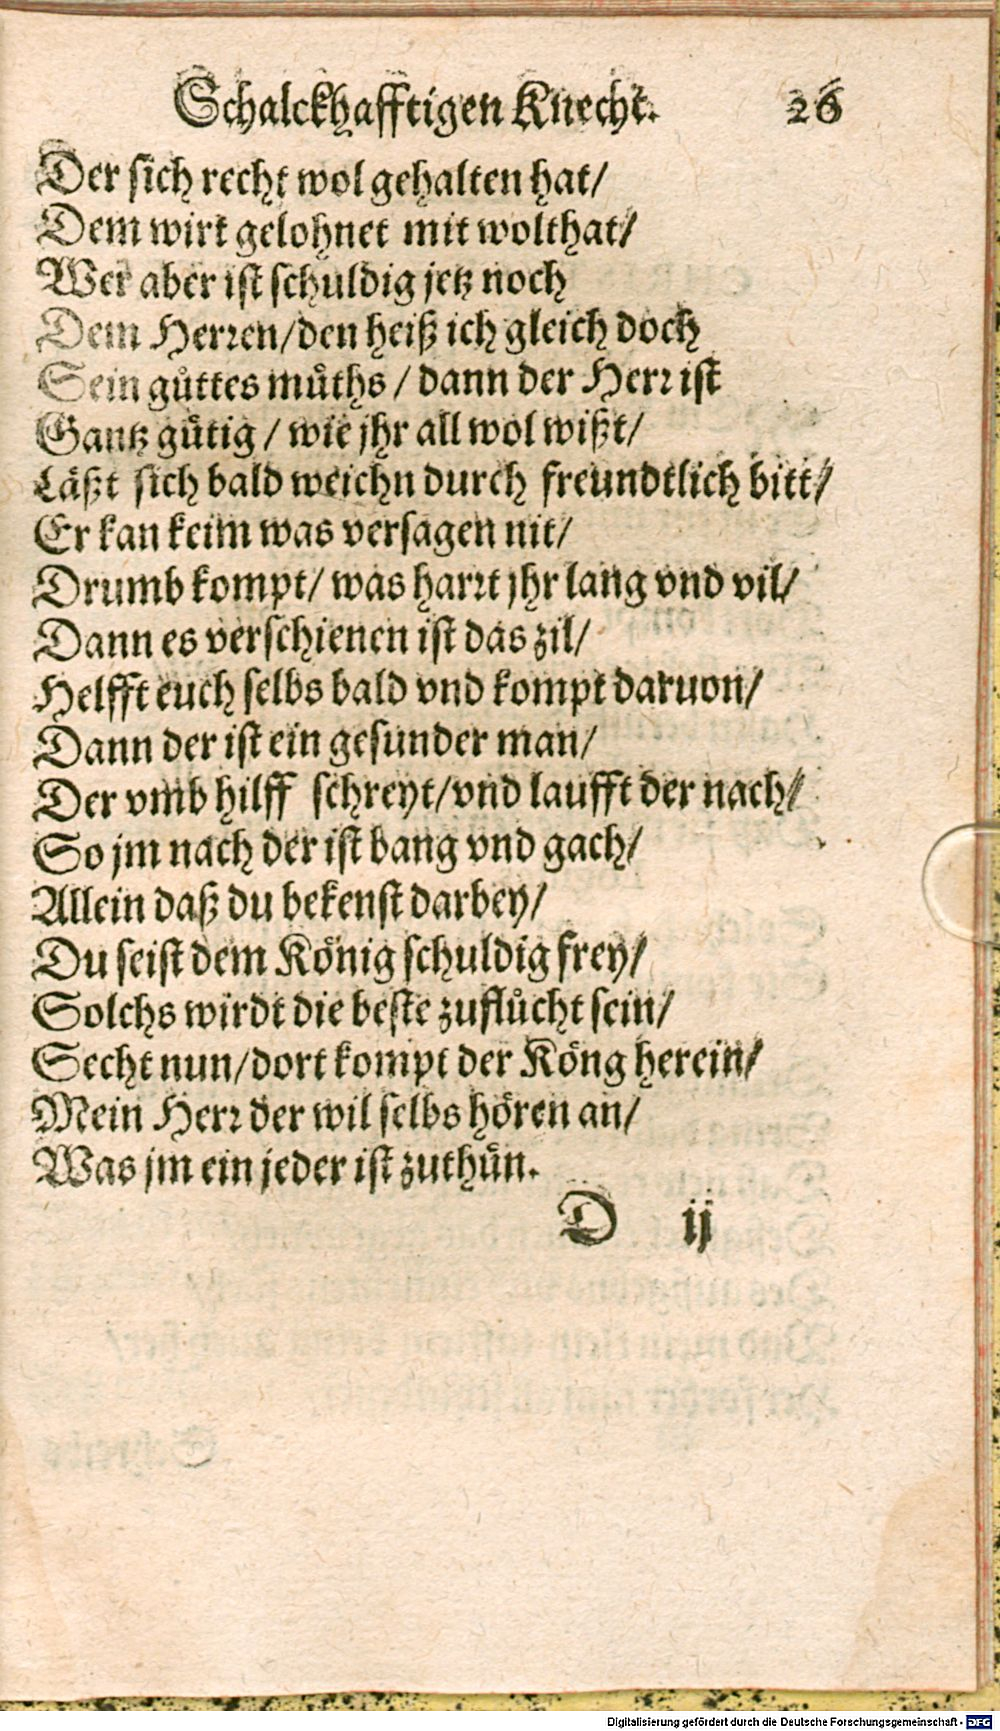 Schalckhafftigen Knecht. 26
Der sich recht wol gehalten hat/
Dem wirt gelohnet mit wolthat/
Wer aber ist schuldig jetz noch
Dem Herren/den heiß ich gleich doch
Sein gůttes můths / dann der Herr ist
Gantz gůtig / wie jhr all wol wißt/
Läßt sich bald weichn durch freundtlich bitt/
Er kan keim was versagen nit/
Drumb kompt/ was harrt jhr lang vnd vil/
Dann es verschienen ist das zil/
Helfft euch selbs bald vnd kompt daruon/
Dann der ist ein gesunder man/
Der vmb hilff schreyt/vnd laufft der nach/
So jm nach der ist bang vnd gach/
Allein daß du bekenst darbey/
Du seist dem König schuldig frey/
Solchs wirdt die beste zuflůcht sein/
Secht nun/dort kompt der Köng herein/
Mein Herr der wil selbs hören an/
Was jm ein jeder ist zuthůn.
D ij
Digitalisierung gefördert durch die Deutsche Forschungsgemeinschaft - DFG